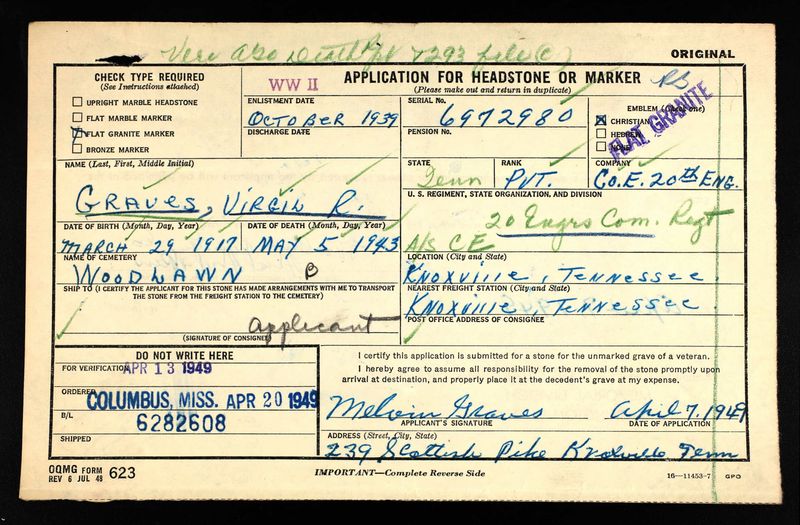 Vera Also Death Rpt 7293 file (c)
ORIGINAL
CHECK TYPE REQUIRED
(See Instructions attached)
UPRIGHT MARBLE HEADSTONE
FLAT MARBLE MARKER
FLAT GRANITE MARKER
BRONZE MARKER
WW II
APPLICATION FOR HEADSTONE OR MARKER
(Please make out and return in duplicate)
ENLISTMENT DATE
OCTOBER 1939
DISCHARGE DATE
SERIAL No.
6972980
PENSION No.
EMBLEM (Check one)
CHRISTIAN
HEBREW
NONE
FLAT GRANITE
NAME (Last, First, Middle Initial)
GRAVES, VIRGIL R.
STATE
Tenn
RANK
PVT.
COMPANY
Co. E. 20th ENG.
U. S. REGIMENT, STATE ORGANIZATION, AND DIVISION
20 Engrs Com. Regt
A/S CE
DATE OF BIRTH (Month, Day, Year)
MARCH 29 1917
DATE OF DEATH (Month, Day, Year)
MAY 5 1943
NAME OF CEMETERY
WOODLAWN B
LOCATION (City and State)
KNOXVILLE, TENNESSEE.
SHIP TO (I CERTIFY THE APPLICANT FOR THIS STONE HAS MADE ARRANGEMENTS WITH ME TO TRANSPORT
THE STONE FROM THE FREIGHT STATION TO THE CEMETERY)
NEAREST FREIGHT STATION (City and State)
KNOXVILLE, TENNESSEE
POST OFFICE ADDRESS OF CONSIGNEE
applicant
(SIGNATURE OF CONSIGNEE)
DO NOT WRITE HERE
FOR VERIFICATION APR 13 1949
ORDERED COLUMBUS, MISS. APR 20 1949
B/L 6282608
SHIPPED
I certify this application is submitted for a stone for the unmarked grave of a veteran.
I hereby agree to assume all responsibility for the removal of the stone promptly upon
arrival at destination, and properly place it at the decedent's grave at my expense.
Melvin Graves April 7, 1949
APPLICANT'S SIGNATURE DATE OF APPLICATION
ADDRESS (Street, City, State)
239 Scottish Pike Knoxville Tenn
OQMG FORM 623
REV 6 JUL 48
IMPORTANT—Complete Reverse Side
16—11453-7 GPO